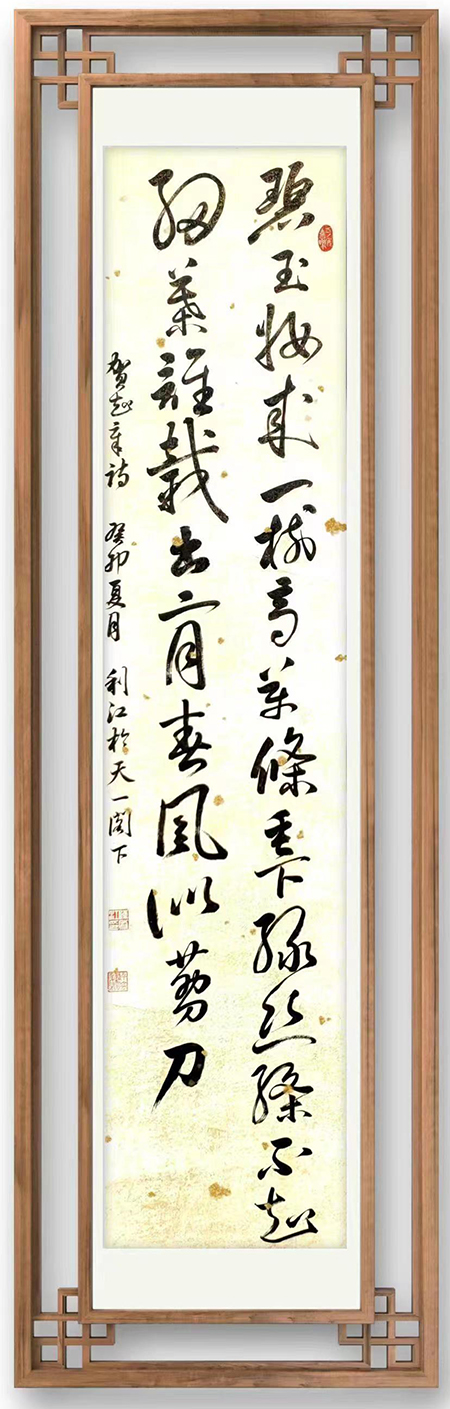 碧玉妝成一樹高萬條垂下綠絲絛不知
細葉誰裁出二月春風似剪刀
賀知章詩 癸卯夏月 利江於天一閣下